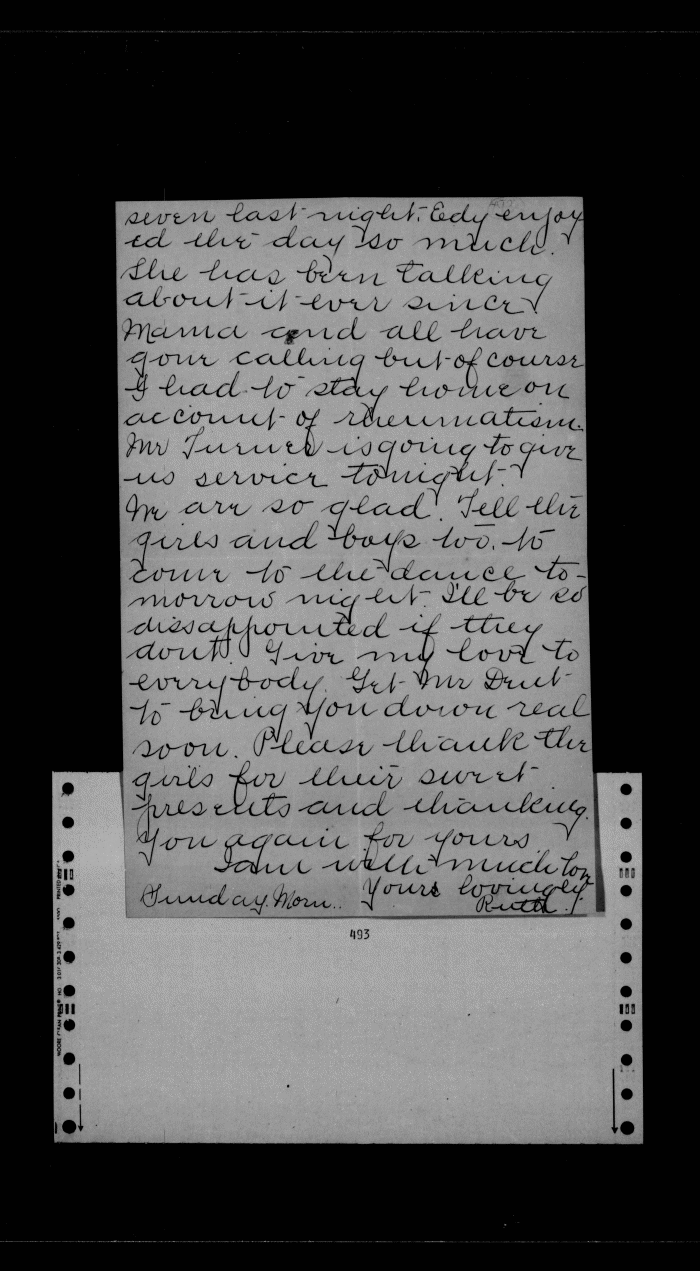 seven last night. Edy enjoy
ed the day so much.
She has been talking
about it ever since
Mama and all have
gone calling but of course
I had to stay home on
account of rheumatism.
Mr Turner is going to give
us service tonight.
We are so glad. Tell the
girls and boys too, to
come to the dance to-
morrow night. I'll be so
dissappointed if they
dont. Give my love to
everybody. Get Mr Dent
to bring you down real
soon. Please thank the
girls for their sweet
presents and thanking
you again for yours
I am with much love
Yours lovingly
Sunday. Morn.. Ruth.
493